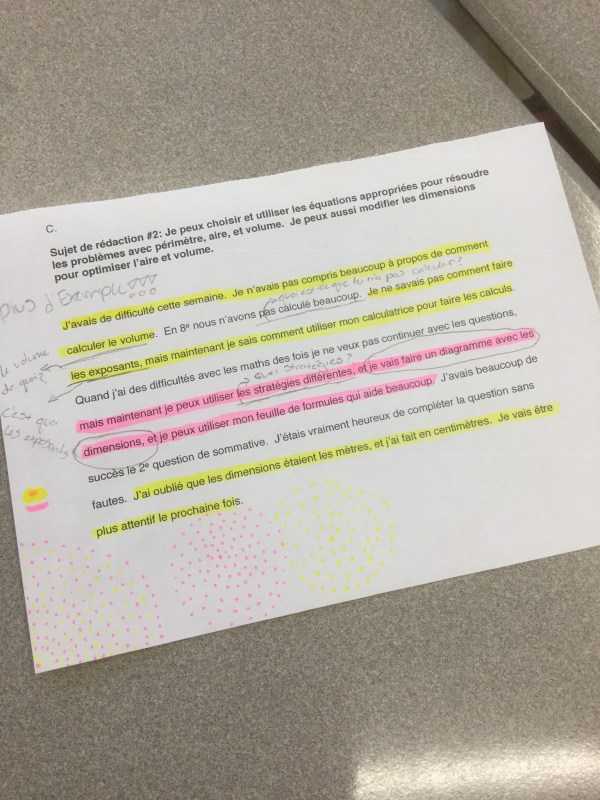 C.
Sujet de rédaction #2: Je peux choisir et utiliser les équations appropriées pour résoudre
les problèmes avec périmètre, aire, et volume. Je peux aussi modifier les dimensions
pour optimiser l'aire et volume.
plus d'Exemple!!!
J'avais de difficulté cette semaine. Je n'avais pas compris beaucoup à propos de comment
quoi est-ce que tu n'a pas calculer?
calculer le volume. En 8e nous n'avons pas calculé beaucoup. Je ne savais pas comment faire
le volume
de quoi?
les exposants, mais maintenant je sais comment utiliser mon calculatrice pour faire les calculs.
Quand j'ai des difficultés avec les maths des fois je ne veux pas continuer avec les questions,
quel stratégies?
c'est quoi
les exposants
mais maintenant je peux utiliser les stratégies différentes, et je vais faire un diagramme avec les
dimensions, et je peux utiliser mon feuille de formules qui aide beaucoup. J'avais beaucoup de
succès le 2e question de sommative. J'étais vraiment heureux de compléter la question sans
fautes. J'ai oublié que les dimensions étaient les mètres, et j'ai fait en centimètres. Je vais être
plus attentif le prochaine fois.